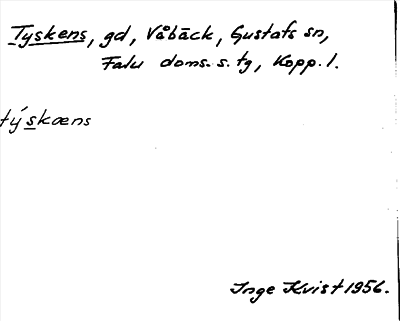 Tyskens, gd, Våbäck, Gustafs sn,
Falu doms. s. tg, Kopp. l.
týskæns
Inge Kvist 1956.